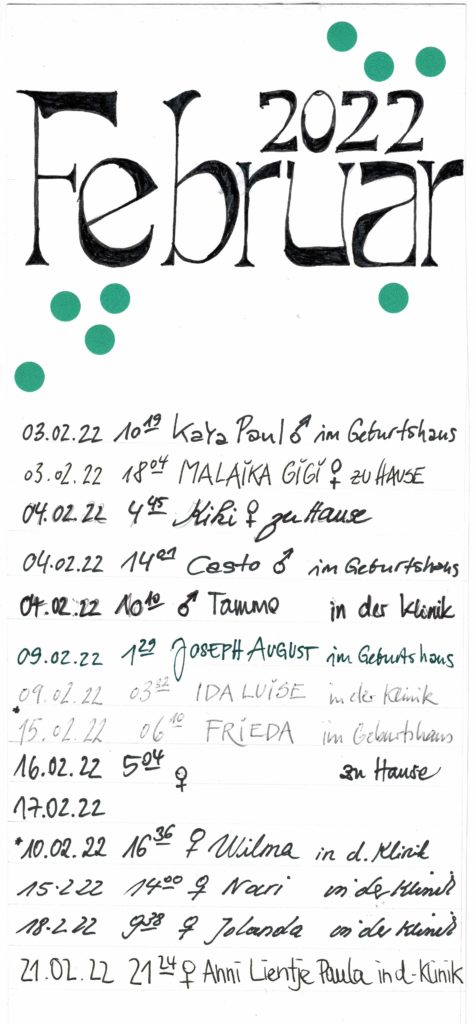 2022
Februar
03.02.22 10¹⁹ Kaya Paul ♂ im Geburtshaus
03.02.22 18⁰⁴ MALAIKA GIGI ♀ ZU HAUSE
04.02.22 4⁴⁵ Kiki ♀ zu Hause
04.02.22 14⁰¹ Casto ♂ im Geburtshaus
04.02.22 10¹⁰ ♂ Tammo in der Klinik
09.02.22 1²⁹ JOSEPH AUGUST im Geburtshaus
09.02.22 03³² IDA LUISE in der Klinik
*15.02.22 06¹⁰ FRIEDA im Geburtshaus
16.02.22 5⁰⁴ ♀ zu Hause
17.02.22
*10.02.22 16³⁶ ♀ Wilma in d. Klinik
15.2.22 14⁰⁰ ♀ Nari in der Klinik
18.2.22 9³⁸ ♀ Jolanda in der Klinik
21.02.22 21²⁴ ♀ Anni Lientje Paula in d. Klinik